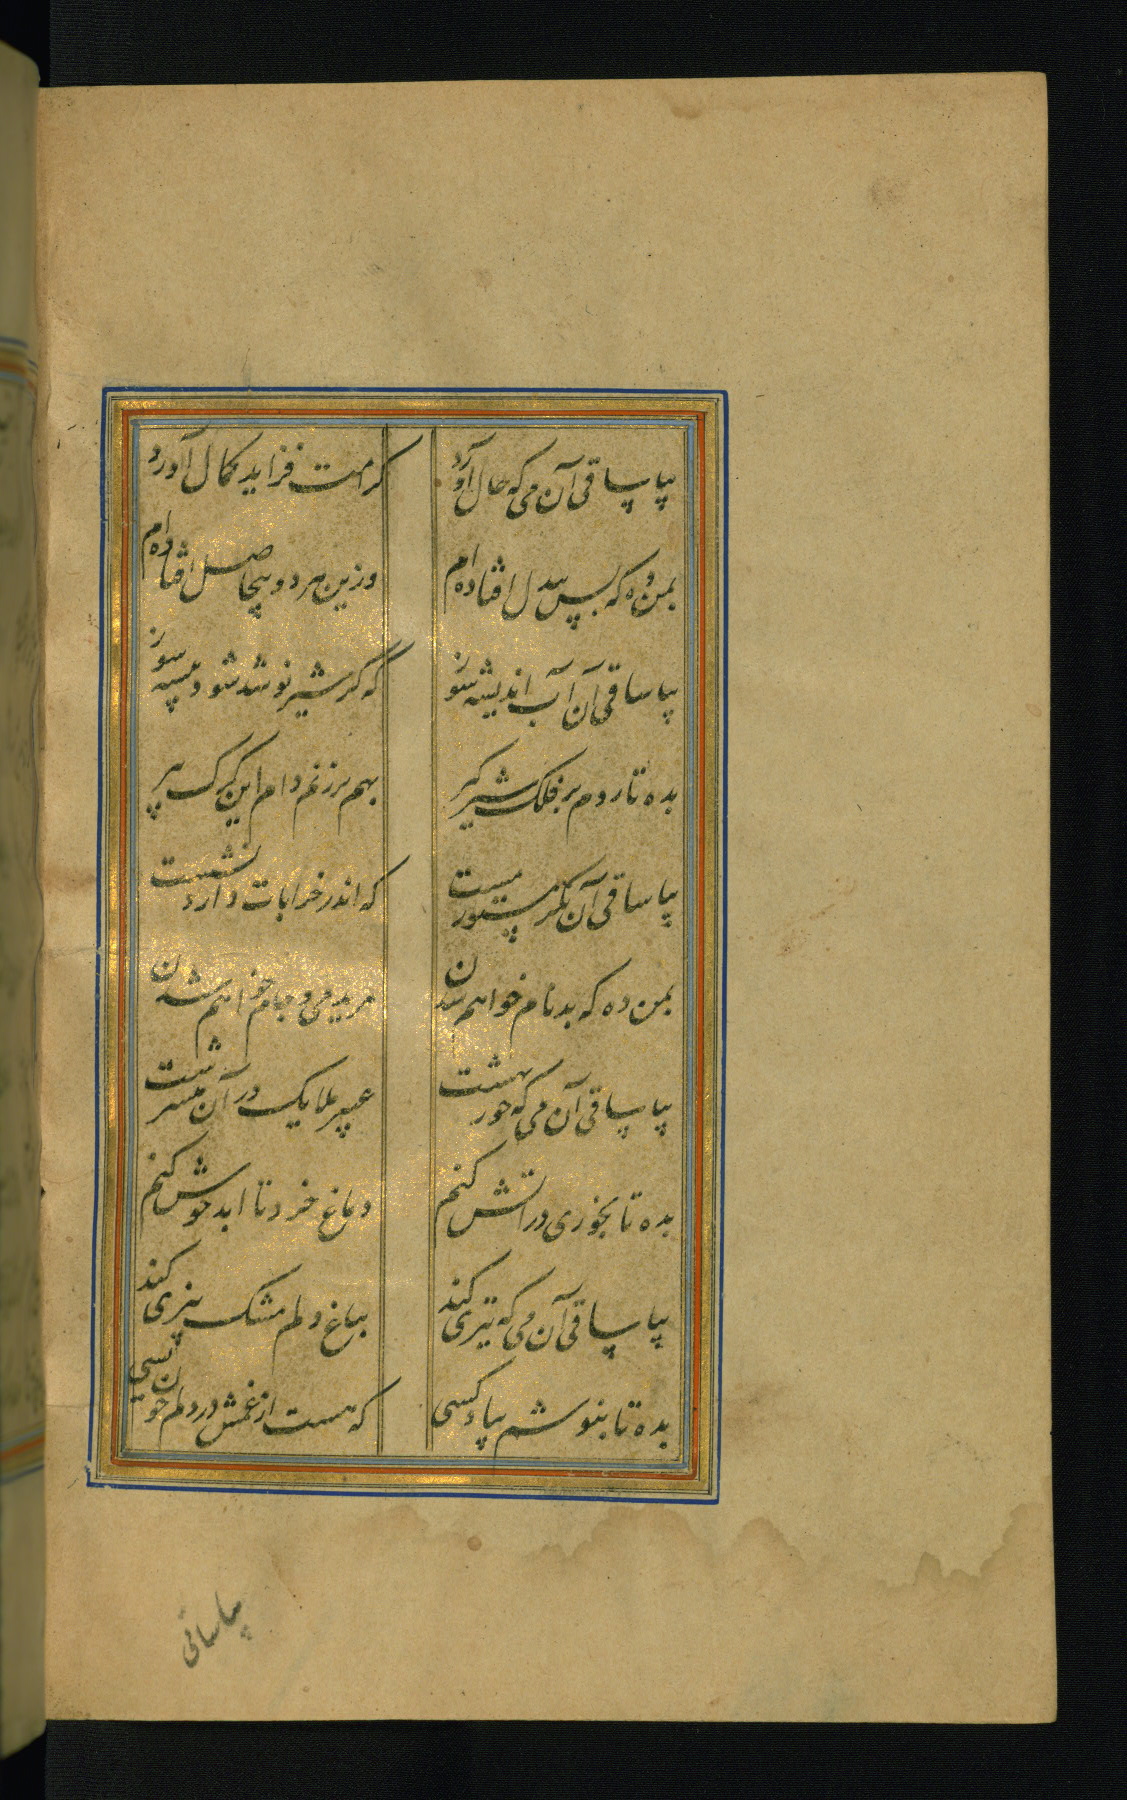 بیا ساقی آن می که حال آورد
کرامت فزاید کمال آورد
بمن ده که بس بیدل افتاده‌ام
وزین هر دو بیحاصل افتاده‌ام
بیا ساقی آن آب اندیشه سوز
که گر شیر نوشد شود بیشه سوز
بده تا روم بر فلک شیر گیر
بهم بر زنم دام این گرگ پیر
بیا ساقی آن بکر مستور مست
که اندر خرابات دارد نشست
بمن ده که بدنام خواهم شدن
مرید می و جام خواهم شدن
بیا ساقی آن می که حور بهشت
عبیر ملایک در آن می سرشت
بده تا بخوری در آتش کنم
دماغ خرد تا ابد خوش کنم
بیا ساقی آن می که تیزی کند
بباغ دلم مشک بیزی کند
بده تا بنوشم بیاد کسی
که هست از غمش در دلم خون بسی
بیا ساقی